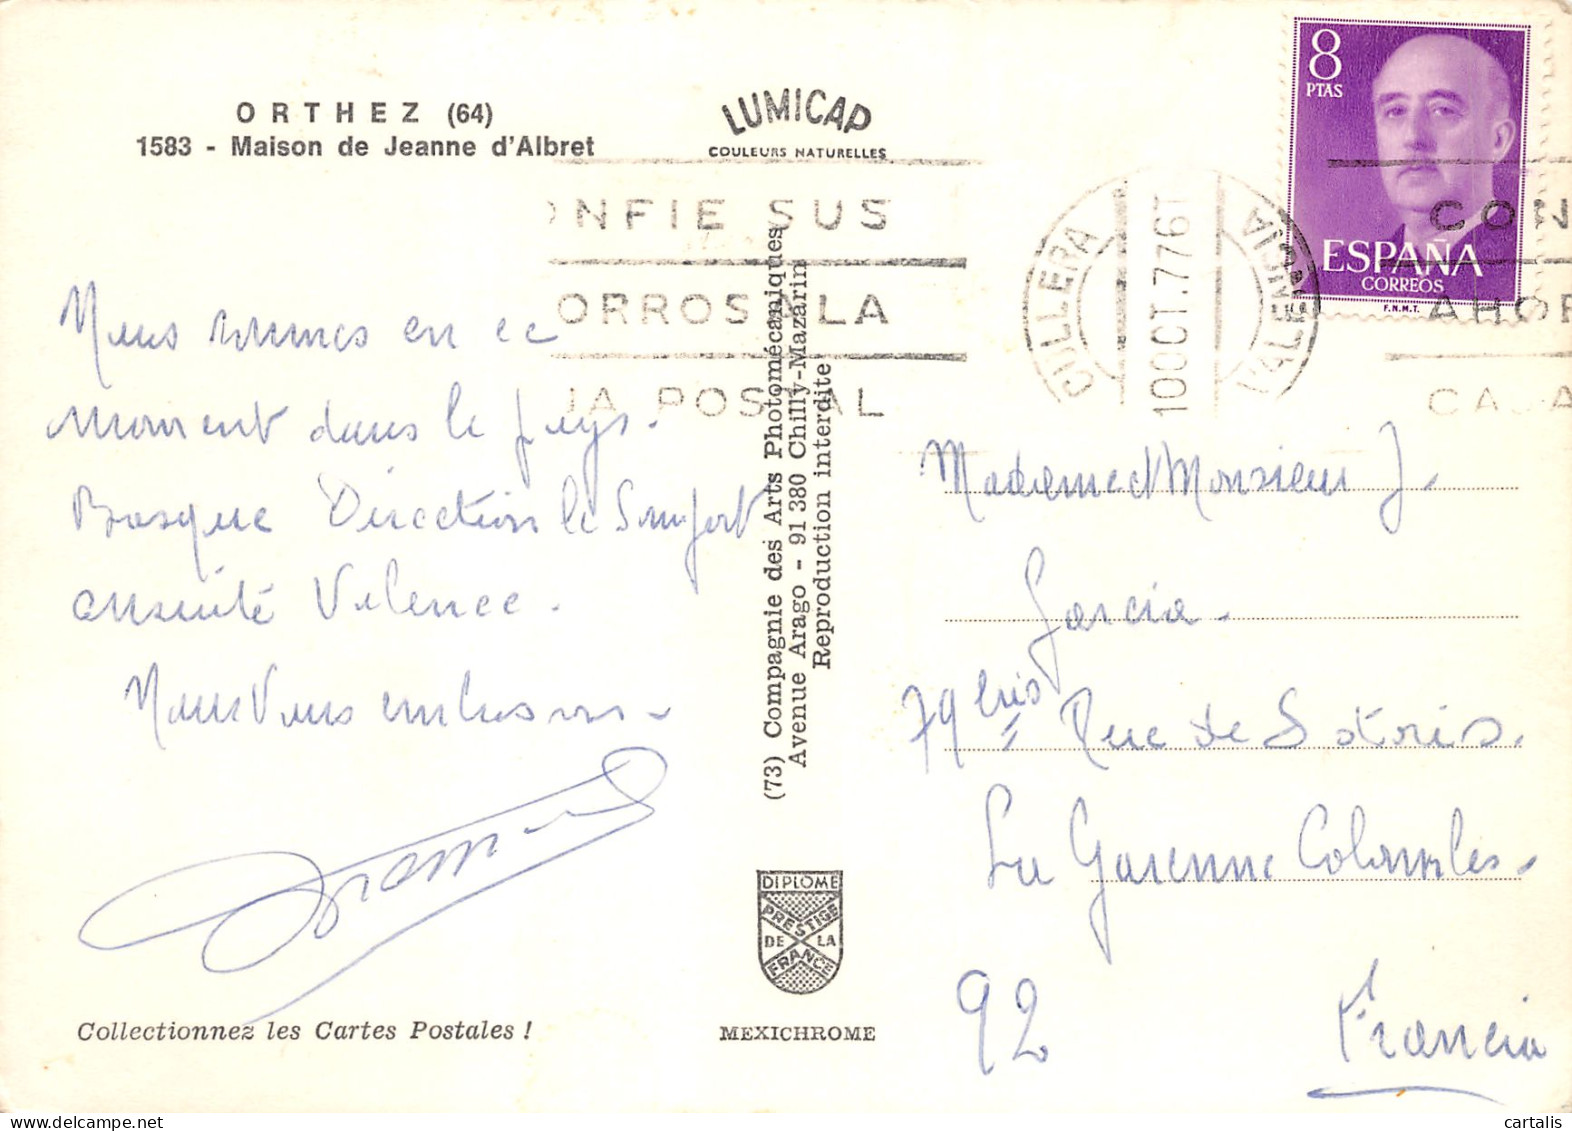 ORTHEZ (64)
1583 - Maison de Jeanne d'Albret
LUMICAP
COULEURS NATURELLES
8
PTAS
ESPAÑA
CORREOS
F.N.M.T.
ONFIE SUS
ORROS A LA
JA POSTAL
CULLERA
10 OCT. 77 6T
VALENCIA
CON
AHOR
CAJA
Nous sommes en ce
moment dans le pays.
Basque Direction le
ensuite Valence.
Nous vous embrassons
Madame et Monsieur J.
Garcia.
79 bis Rue de
La Garenne Colombes.
92 Francia
(73) Compagnie des Arts Photomécaniques
Avenue Arago - 91 380 Chilly-Mazarin
Reproduction interdite
DIPLOME
PRESTIGE
DE LA
FRANCE
Collectionnez les Cartes Postales !
MEXICHROME
cartalis